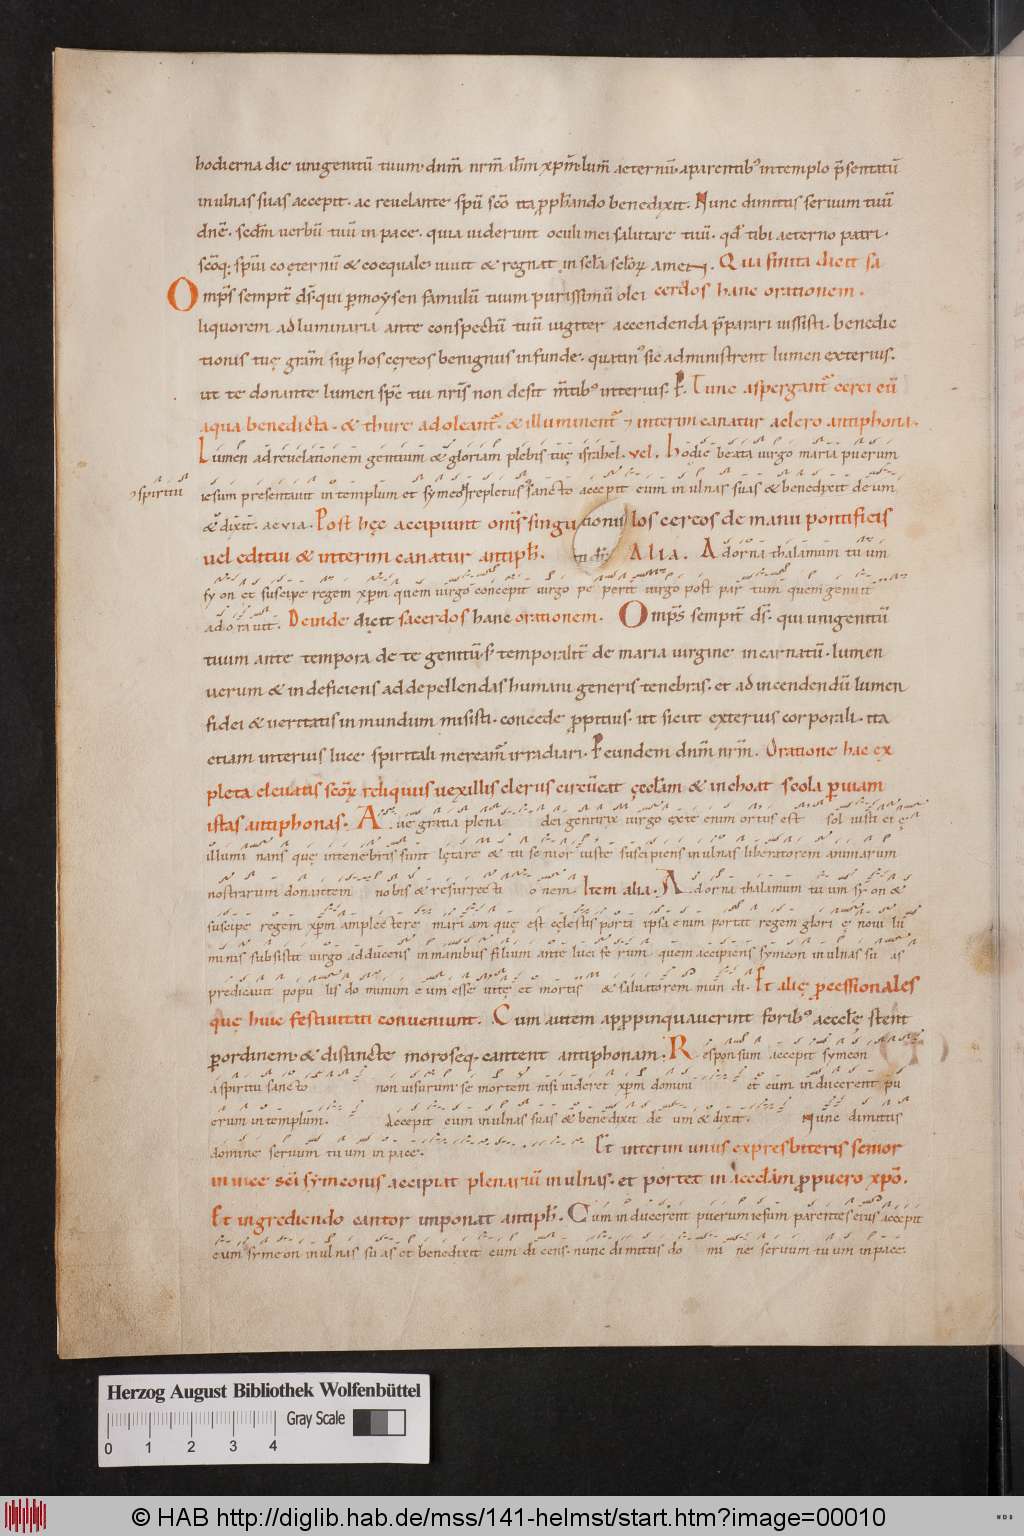 hodierna die unigenitū tuum dnm̄ nrm̄ ihm̄ xpm̄ lum̄ aeternū aparentibꝰ in templo p̄sentatū
in ulnas suas accepit. ac reuelante spū sc̄o ita ꝓph̄ando benedixit. Nunc dimittis seruum tuū
dnē. sedm̄ uerbū tuū in pace. quia uiderunt oculi mei salutare tuū. qd̄ tibi aeterno patri.
sc̄oq; spūi coęternū & coequale uiuit & regnat in sc̄la sc̄loꝝ amen. Qua finita dicit sa
Omp̄s sempit̄ ds̄. qui p moysen famulū tuum purissimū olei cerdos hanc orationem.
liquorem ad luminaria ante conspectū tuū iugiter accendenda p̄parari iussisti. benedic
tionis tuę gram̄ sup hos cęreos benignus infunde. quatinꝰ sic administrent lumen exterius.
ut te donante lumen spc̄ tui nr̄is non desit m̄tibꝰ interius. P. Tunc aspergant̄ cerei eū
aqua benedicta. & thure adoleant̄. & illuminent̄ & interim canatur a clero antiphona.
Lumen ad reuelationem gentium & gloriam plebis tuę israhel. vel. Hodie beata uirgo maria puerum
spiritu
iesum presentauit in templum et symeon repletus sancto accepit eum in ulnas suas & benedixit deum
& dixit. aeuia. Post hęc accipiunt omīs singu los cereos de manu pontificis
tionis
uel editui & interim canatur antiph̄. in dn̄i Alia. Adorna thalamum tuum
syon et suscipe regem xpm̄ quem uirgo concepit uirgo peperit uirgo post partum quem genuit
adorauit. Deinde dicit sacerdos hanc orationem. Omp̄s sempit̄ ds̄. qui unigenitū
tuum ante tempora de te genitū. s; temporalit̄ de maria uirgine incarnatū. lumen
uerum & indeficiens ad depellendas humani generis tenebras. et ad incendendū lumen
fidei & ueritatis in mundum misisti. concede ꝓpitius. ut sicut exterius corporali. ita
etiam interius luce spiritali meream̄ irradiari. P eundem dnm̄ nrm̄. Oratione hac ex
pleta eleuatis sc̄oꝝ reliquiis uexillis clerus circūeat ęcclam̄ & inchoat scola p uiam
istas antiphonas. Aue gratia plena dei genitrix uirgo ex te enim ortus est sol iusti ci ę
illuminans quę in tenebris sunt lętare & tu senior iuste suscipiens in ulnas liberatorem animarum
nostrarum donantem nobis & resurrecti onem. Item alia. Adorna thalamum tuum syon &
suscipe regem xpm̄ amplectere mariam quę est cęlestis porta ipsa enim portat regem glorię noui lu
minis subsistit uirgo adducens in manibus filium ante luciferum quem accipiens symeon in ulnas suas
predicauit populis dominum eum esse uitę et mortis & saluatorem mundi. Et alię ꝓcessionales
quę huic festiuitati conueniunt. Cum autem appropinquauerint foribꝰ acclę stent
p ordinem. & distincte moroseq. cantent antiphonam. Responsum accepit symeon
a spiritu sancto non uisurum se mortem nisi uideret xpm̄ domini et cum inducerent pu
erum in templum. Accepit eum in ulnas suas & benedixit deum & dixit. Nunc dimittis
domine seruum tuum in pace. Et interim unus ex presbiteris senior
in uice sc̄i symeonis accipiat plenariū in ulnas. et portet in aecclam̄ ꝓ puero xpo.
Et ingrediendo cantor imponat antiph̄. Cum inducerent puerum iesum parentes eius accepit
eum symeon in ulnas suas et benedixit eum dicens. nunc dimittis domine seruum tuum in pace.
Herzog August Bibliothek Wolfenbüttel
Gray Scale
0 1 2 3 4
© HAB http://diglib.hab.de/mss/141-helmst/start.htm?image=00010